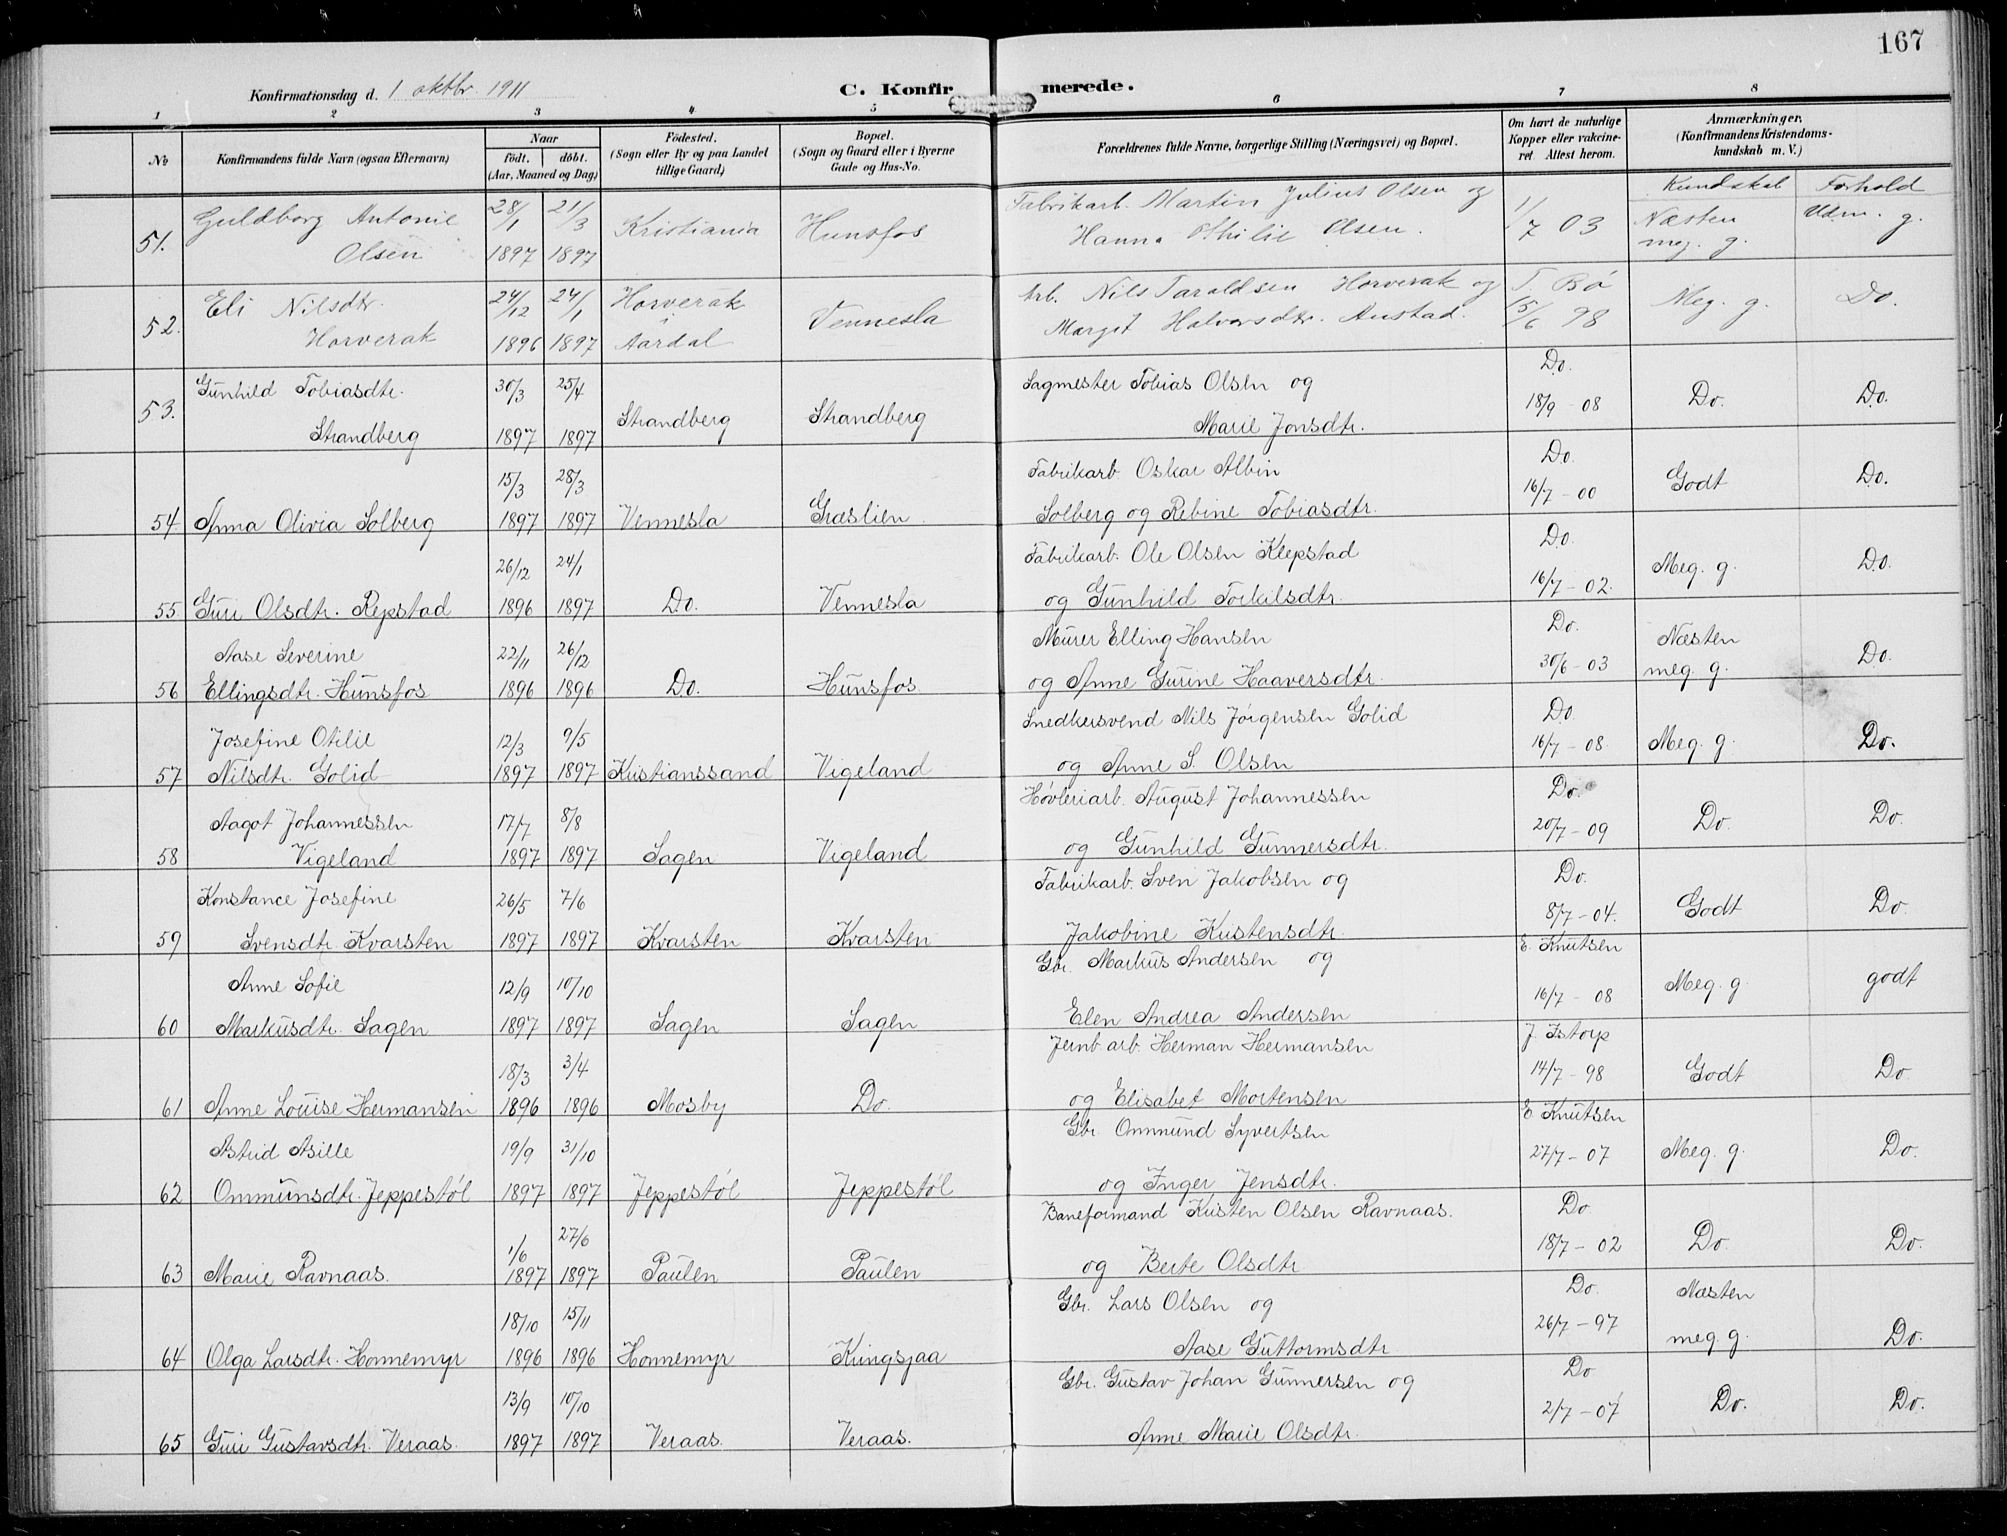 167
Konfirmationsdag d. 1 oktbr. 1911
C. Konfirmerede.
1 2 3 4 5 6 7 8
No
Konfirmandens fulde Navn (ogsaa Efternavn)
Naar
født. døbt.
(Aar, Maaned og Dag)
Fødested.
(Sogn eller By og paa Landet
tillige Gaard)
Bopæl.
(Sogn og Gaard eller i Byerne
Gade og Hus-No.
Forældrenes fulde Navne, borgerlige Stilling (Næringsvei) og Bopæl.
Om havt de naturlige
Kopper eller vakcine-
ret. Attest herom.
Anmærkninger.
(Konfirmandens Kristendoms-
kundskab m. V.)
Kundskab Forhold
Guldborg Antonie 28/1 21/3 Kristiania Hunsfos Fabrikarb. Martin Julius Olsen og 1/7 03 Næsten Udm. g.
51. Olsen 1897 1897 Hanna Othilie Olsen. meg. g.
Eli Nilsdtr. 24/12 24/1 Horverak Arb. Nils Taraldsen Horverak og T. Bø Meg. g. Do.
52. Horverak 1896 1897 Aardal Vennesla Margit Halvorsdtr. Austad. 15/6 98
Gunhild Tobiasdtr. 30/3 25/4 Sagmester Tobias Olsen og Do.
53. Strandberg 1897 1897 Strandberg Strandberg Marie Jonsdtr. 18/9 - 08 Do. Do.
15/3 28/3 Fabrikarb. Oskar Albin Do.
54 Anna Olivia Solberg 1897 1897 Vennesla Græslien Solberg og Rebine Tobiasdtr. 16/7 - 00 Godt Do.
26/12 24/1 Fabrikarb. Ole Olsen Klepstad Do.
55 Guri Olsdtr. Repstad 1896 1897 Do. Vennesla og Gunhild Torkilsdtr. 16/7 - 02. Meg. g. Do.
Aase Severine 22/11 26/12 Murer Elling Hansen Do. Næsten
56 Ellingsdtr. Hunsfos 1896 1896 Do. Hunsfos og Anne Gurine Haaversdtr. 30/6 - 03 meg. g. Do.
Josefine Otilie 12/3 9/5 Snedkersvend Nils Jørgensen Golid Do.
57 Nilsdtr. Golid 1897 1897 Kristianssand Vigeland og Anne S. Olsen 16/7 - 08 Meg. g. Do.
Aagot Johannessen 17/7 8/8 Høvleriarb. August Johannessen Do.
58 Vigeland 1897 1897 Sagen Vigeland og Gunhild Gunnersdtr. 20/7 - 09 Do. Do.
Konstance Josefine 26/5 7/6 Fabrikarb. Sven Jakobsen og Do.
59 Svensdtr. Kvarsten 1897 1897 Kvarsten Kvarsten Jakobine Kristensdtr. 8/7 - 04. Godt Do.
Anne Sofie 12/9 10/10 Gbr. Markus Andersen og E. Knutsen
60 Markusdtr. Sagen 1897 1897 Sagen Sagen Elen Andrea Andersen 16/7 - 08 Meg. g. godt
18/3 3/4 Jernb. arb. Herman Hermansen J. Istorp
61 Anne Louise Hermansen 1896 1896 Mosby Do. og Elisabet Mortensen 14/7 - 98 Godt Do.
Astrid Asille 19/9 31/10 Gbr. Ommund Syvertsen E. Knutsen
62 Ommunsdtr. Jeppestøl 1897 1897 Jeppestøl Jeppestøl og Inger Jensdtr. 27/7 - 07 Meg. g. Do.
1/6 27/6 Baneformand Kristen Olsen Ravnaas. Do.
63 Marie Ravnaas. 1897 1897 Paulen Paulen og Berte Olsdtr. 18/7 - 02 Do. Do.
18/10 15/11 Gbr. Lars Olsen og Do. Næsten
64 Olga Larsdtr. Honnemyr 1896 1896 Honnemyr Kringsjaa Aase Guttormsdtr 26/7 - 97 meg. g. Do.
13/9 10/10 Gbr. Gustav Johan Gunnersen og Do
65 Guri Gustavsdtr. Veraas. 1897 1897 Veraas. Veraas. Anne Marie Olsdtr. 2/7 - 07 Do. Do.